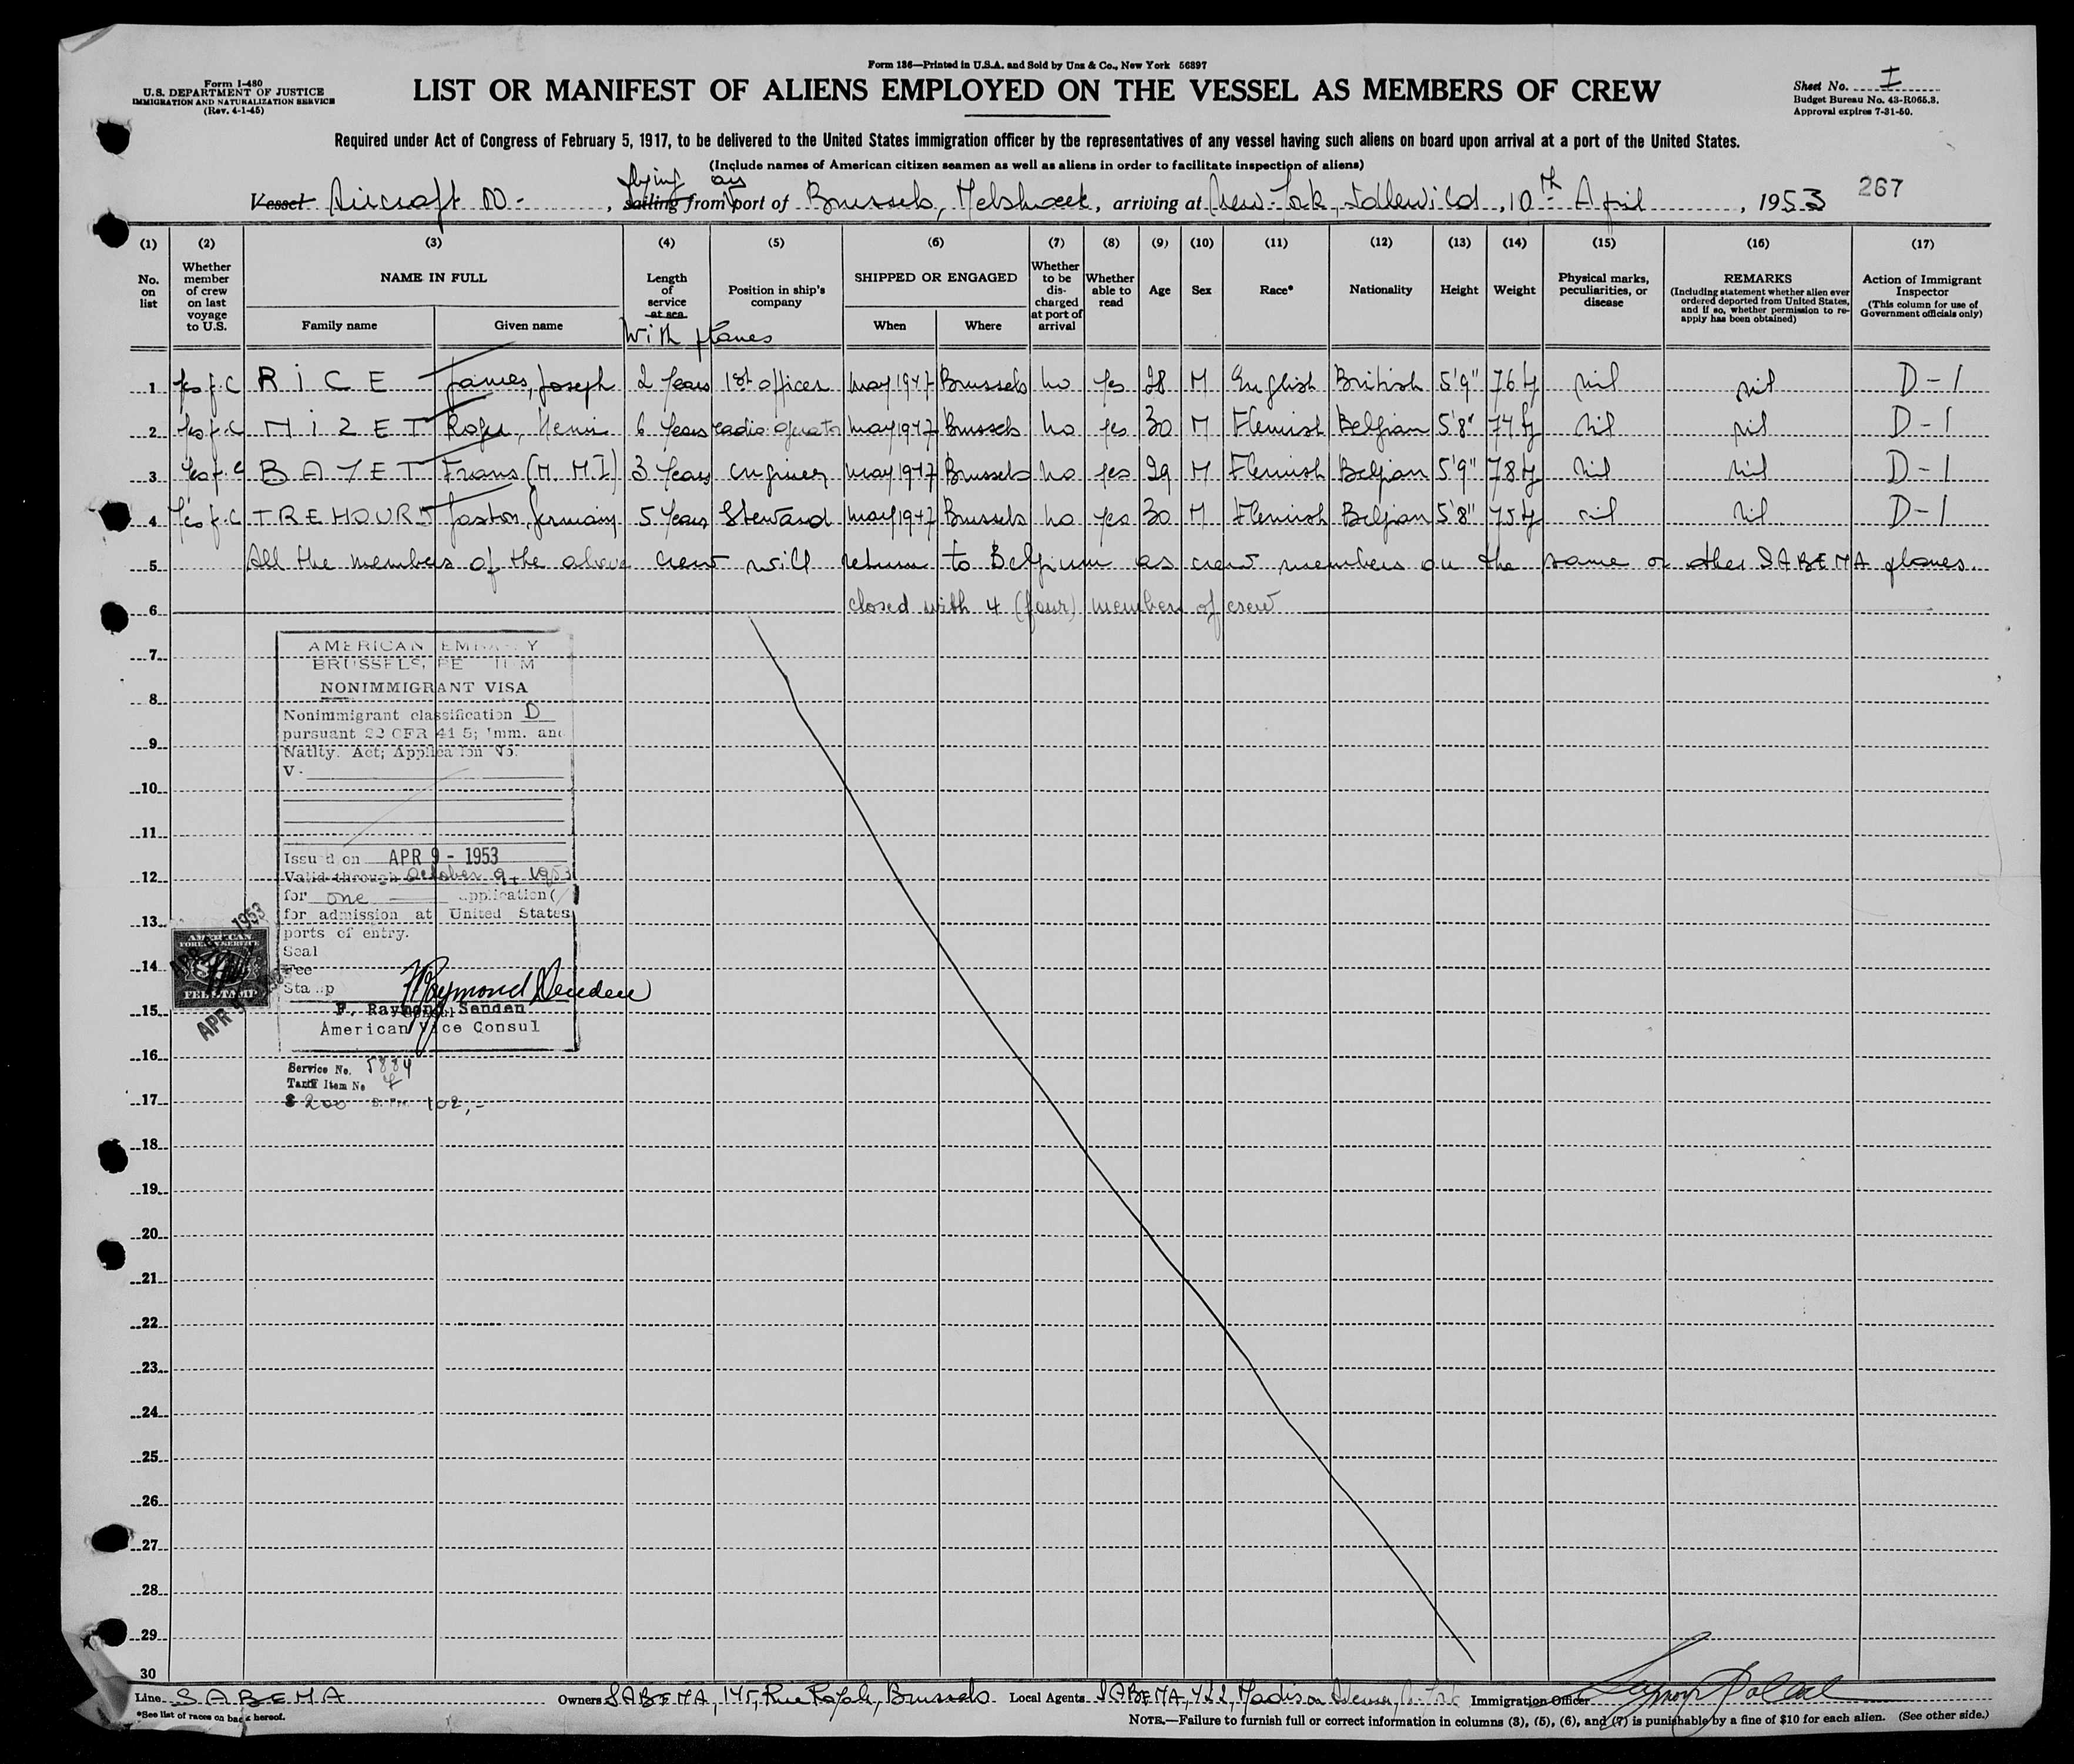 Form 136—Printed in U.S.A. and Sold by Unz & Co., New York 56897
Form I-480
U.S. DEPARTMENT OF JUSTICE
IMMIGRATION AND NATURALIZATION SERVICE
(Rev. 4-1-45)
LIST OR MANIFEST OF ALIENS EMPLOYED ON THE VESSEL AS MEMBERS OF CREW
Sheet No. I
Budget Bureau No. 43-R065.3.
Approval expires 7-31-50.
Required under Act of Congress of February 5, 1917, to be delivered to the United States immigration officer by the representatives of any vessel having such aliens on board upon arrival at a port of the United States.
(Include names of American citizen seamen as well as aliens in order to facilitate inspection of aliens)
flying air
Vessel Aircraft OO- , sailing from port of Brussels, Melsbroek, arriving at New-York, Idlewild, 10th April, 1953 267
(1) (2) (3) (4) (5) (6) (7) (8) (9) (10) (11) (12) (13) (14) (15) (16) (17)
No. on list
Whether member of crew on last voyage to U.S.
NAME IN FULL
Family name Given name
Length of service at sea
With planes
Position in ship's company
SHIPPED OR ENGAGED
When Where
Whether to be discharged at port of arrival
Whether able to read
Age Sex Race* Nationality Height Weight
Physical marks, peculiarities, or disease
REMARKS
(Including statement whether alien ever ordered deported from United States, and if so, whether permission to reapply has been obtained)
Action of Immigrant Inspector
(This column for use of Government officials only)
1 Yes f.C RICE James, Joseph 2 Years 1st officer May 1947 Brussels no yes 28 M English British 5'9" 76 nil nil D-1
2 Yes f.C MIZET Roger, Henri 6 Years radio operator May 1947 Brussels no yes 30 M Flemish Belgian 5'8" 74 nil nil D-1
3 Yes f.C BAYET Frans (M.M.I) 3 Years engineer May 1947 Brussels no yes 29 M Flemish Belgian 5'9" 78 nil nil D-1
4 Yes f.C TREMOURS Gaston, Germain 5 Years Steward May 1947 Brussels no yes 30 M Flemish Belgian 5'8" 75 nil nil D-1
5 All the members of the above crew will return to Belgium as crew members on the same or other SABENA planes.
6 closed with 4 (four) members of crew
7
8
9
10
11
12
13
14
15
16
17
18
19
20
21
22
23
24
25
26
27
28
29
30
AMERICAN EMBASSY
BRUSSELS, BELGIUM
NONIMMIGRANT VISA
Nonimmigrant classification D
pursuant 22 CFR 41 5; Imm. and
Natlty. Act; Application No.
V-
Issued on APR 9 - 1953
Valid through October 9, 1953
for one application(
for admission at United States
ports of entry.
Seal
Fee
Stamp
F. Raymond Senden
Consul
American Vice Consul
AMERICAN
FOREIGN SERVICE
FEE STAMP
APR 9 1953
APR 9 1953
Service No. 5884
Tariff Item No 7
$ 2.00 B. Frs. 102,-
Line SABENA
Owners SABENA, 145, Rue Royale, Brussels
Local Agents SABENA, 422, Madison Avenue, N. York
Immigration Officer
*See list of races on back hereof.
NOTE.—Failure to furnish full or correct information in columns (3), (5), (6), and (7) is punishable by a fine of $10 for each alien. (See other side.)